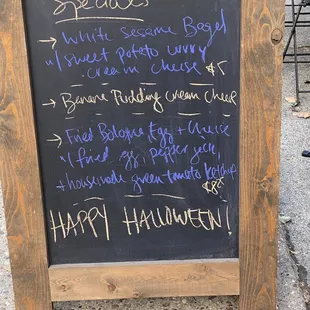 Specials
→ White Sesame Bagel
w/ Sweet Potato curry
cream cheese $5
→ Banana Pudding Cream Cheese
→ Fried Bologna, Egg + Cheese
w/ fried egg, pepper jack,
+ housemade green tomato ketchup
HAPPY HALLOWEEN!